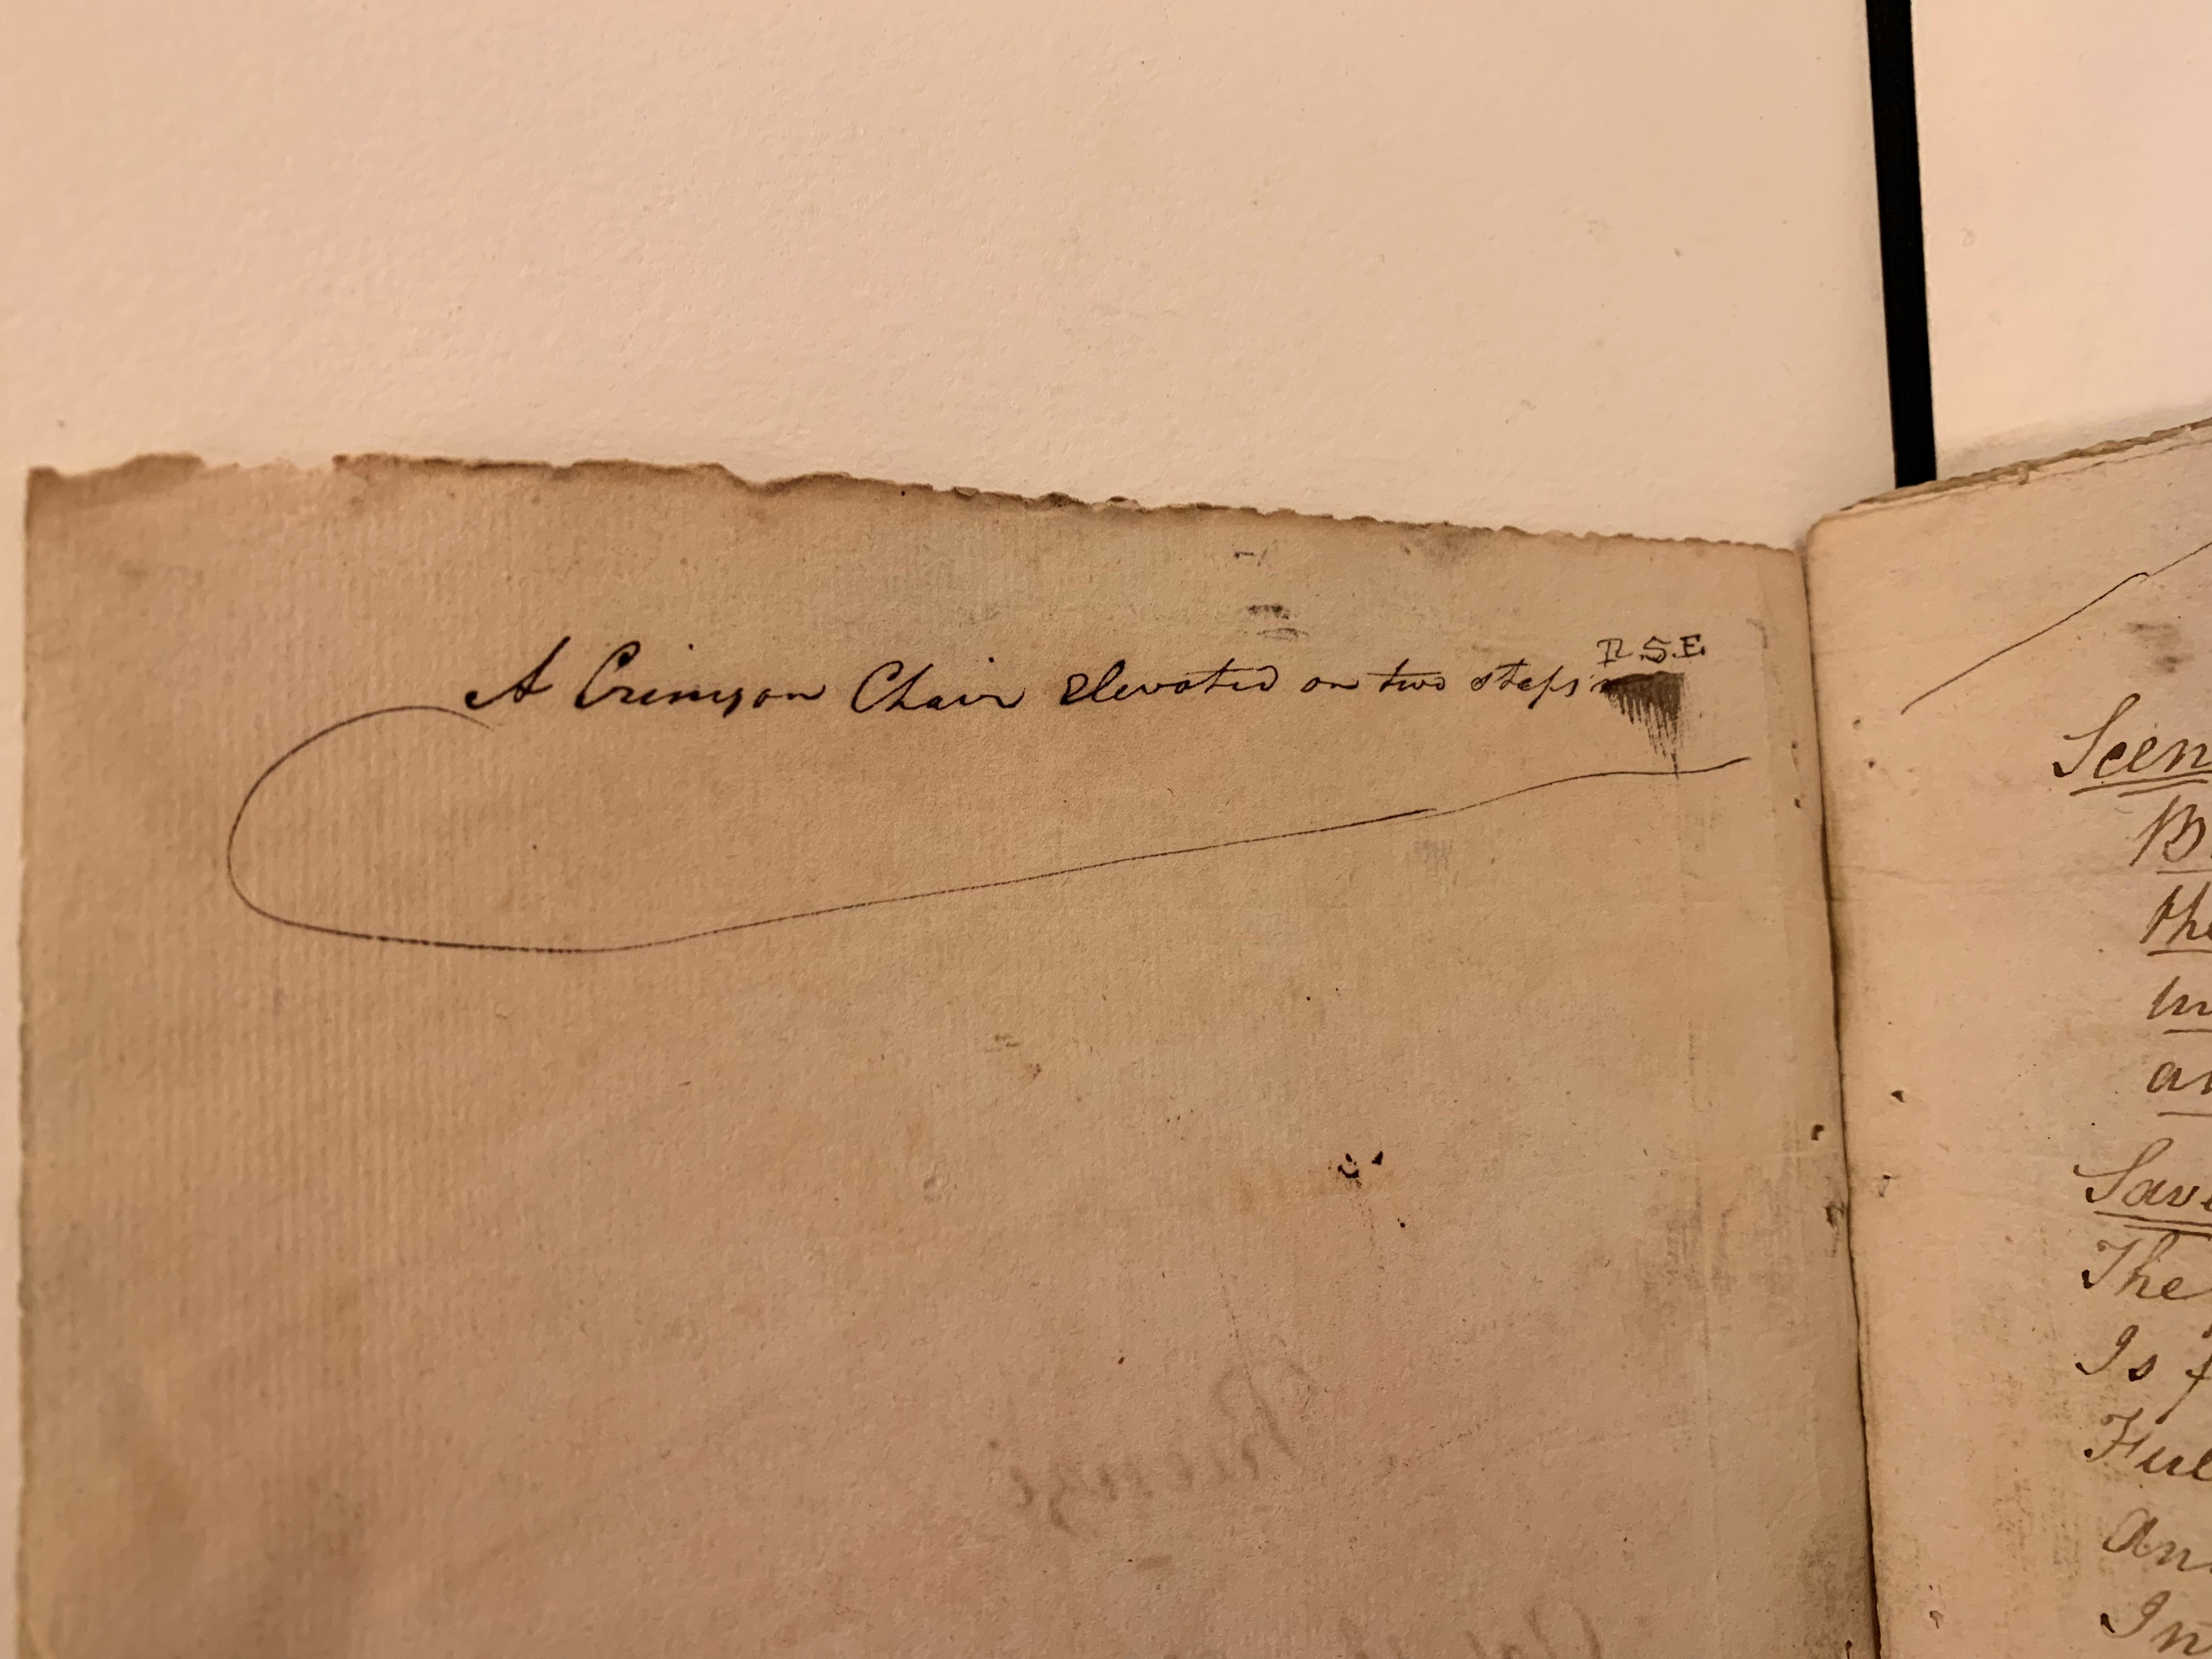 A Crimson Chair elevated on two steps R.S.E.
Scen
B
the
in
an
Save
The
Is f
Hul
An
In
Rienzi